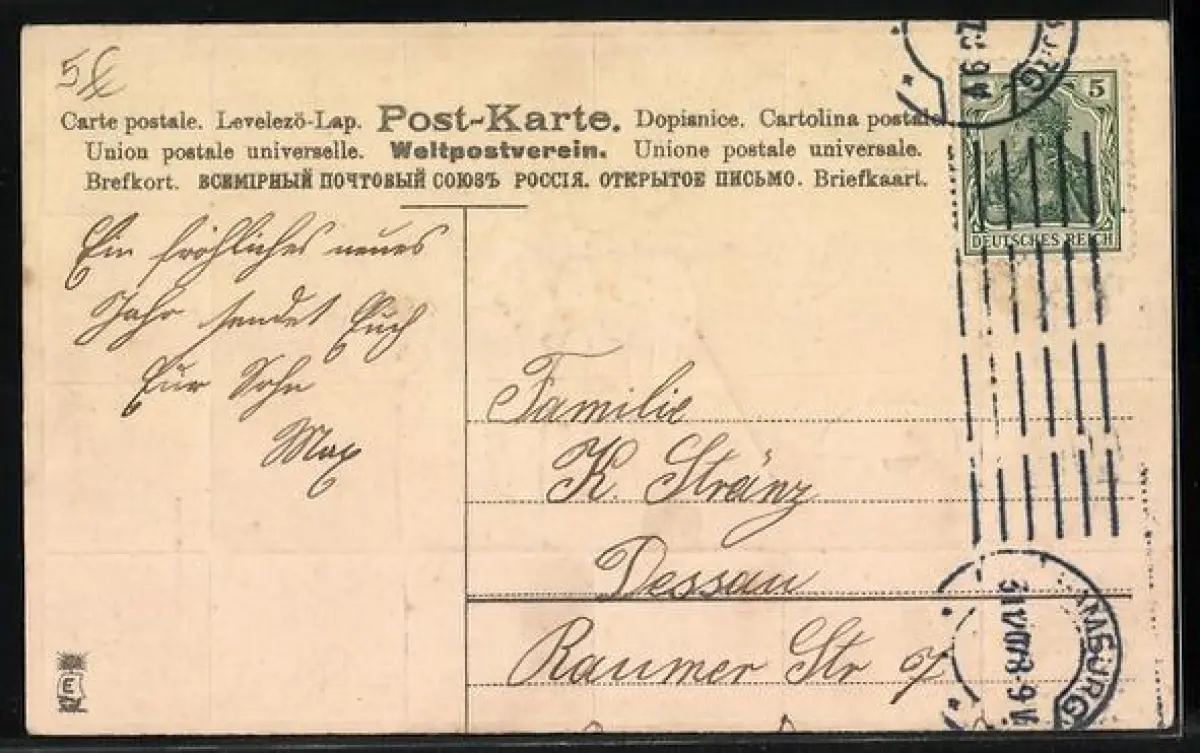 5
Carte postale. Levelezö-Lap. Post-Karte. Dopisnice. Cartolina postale.
Union postale universelle. Weltpostverein. Unione postale universale.
Brefkort. ВСЕМІРНЫЙ ПОЧТОВЫЙ СОЮЗЪ РОССІЯ. ОТКРЫТОЕ ПИСЬМО. Briefkaart.
5
DEUTSCHES REICH
BURG
Ein fröhliches neues
Jahr sendet Euch
Eur Sohn
Max
Familie
K. Stränz
Dessau
Raumer Str 7
AMBURG
8-9V
E